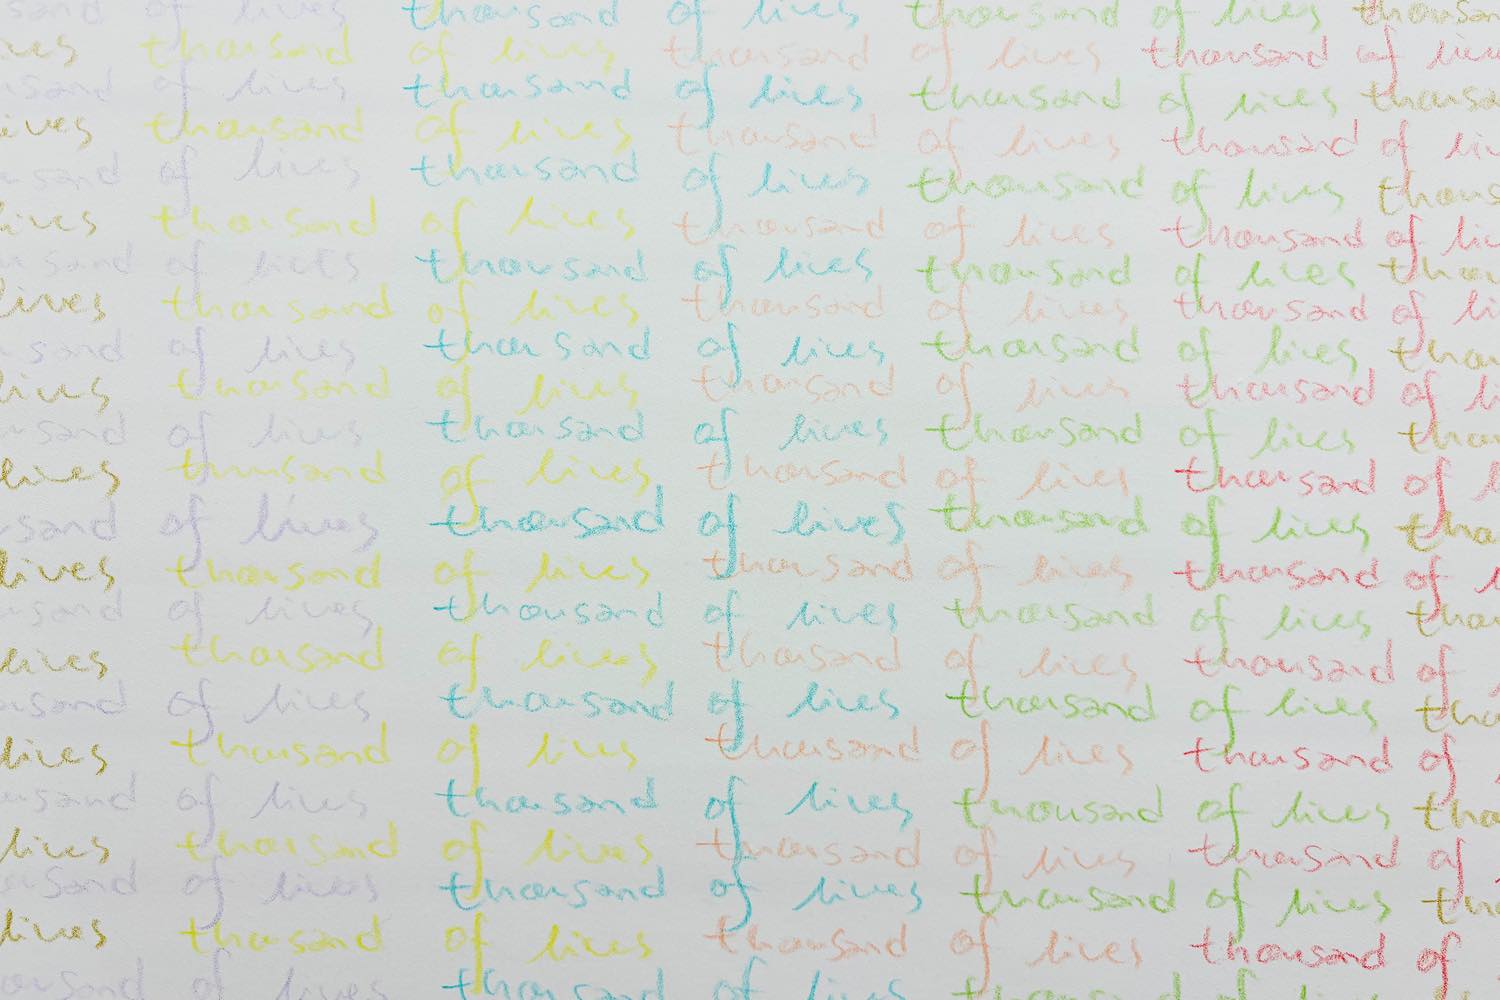 sand of lives thousand of lives thousand of lives thousan
ives thousand of lives thousand of lives thousand of live
usand of lives thousand of lives thousand of lives thousa
lives thousand of lives thousand of lives thousand of liv
usand of lives thousand of lives thousand of lives thous
lives thousand of lives thousand of lives thousand of liv
usand of lives thousand of lives thousand of lives thou
lives thousand of lives thousand of lives thousand of li
usand of lives thousand of lives thousand of lives thou
lives thousand of lives thousand of lives thousand of li
usand of lives thousand of lives thousand of lives thou
lives thousand of lives thousand of lives thousand of l
usand of lives thousand of lives thousand of lives tha
lives thousand of lives thousand of lives thousand of l
usand of lives thousand of lives thousand of lives thou
lives thousand of lives thousand of lives thousand of
usand of lives thousand of lives thousand of lives tho
lives thousand of lives thousand of lives thousand of
usand of lives thousand of lives thousand of lives tho
lives thousand of lives thousand of lives thousand of
usand of lives thousand of lives thousand of lives tho
lives thousand of lives thousand of lives thousand of
ousand of lives thousand of lives thousand of lives